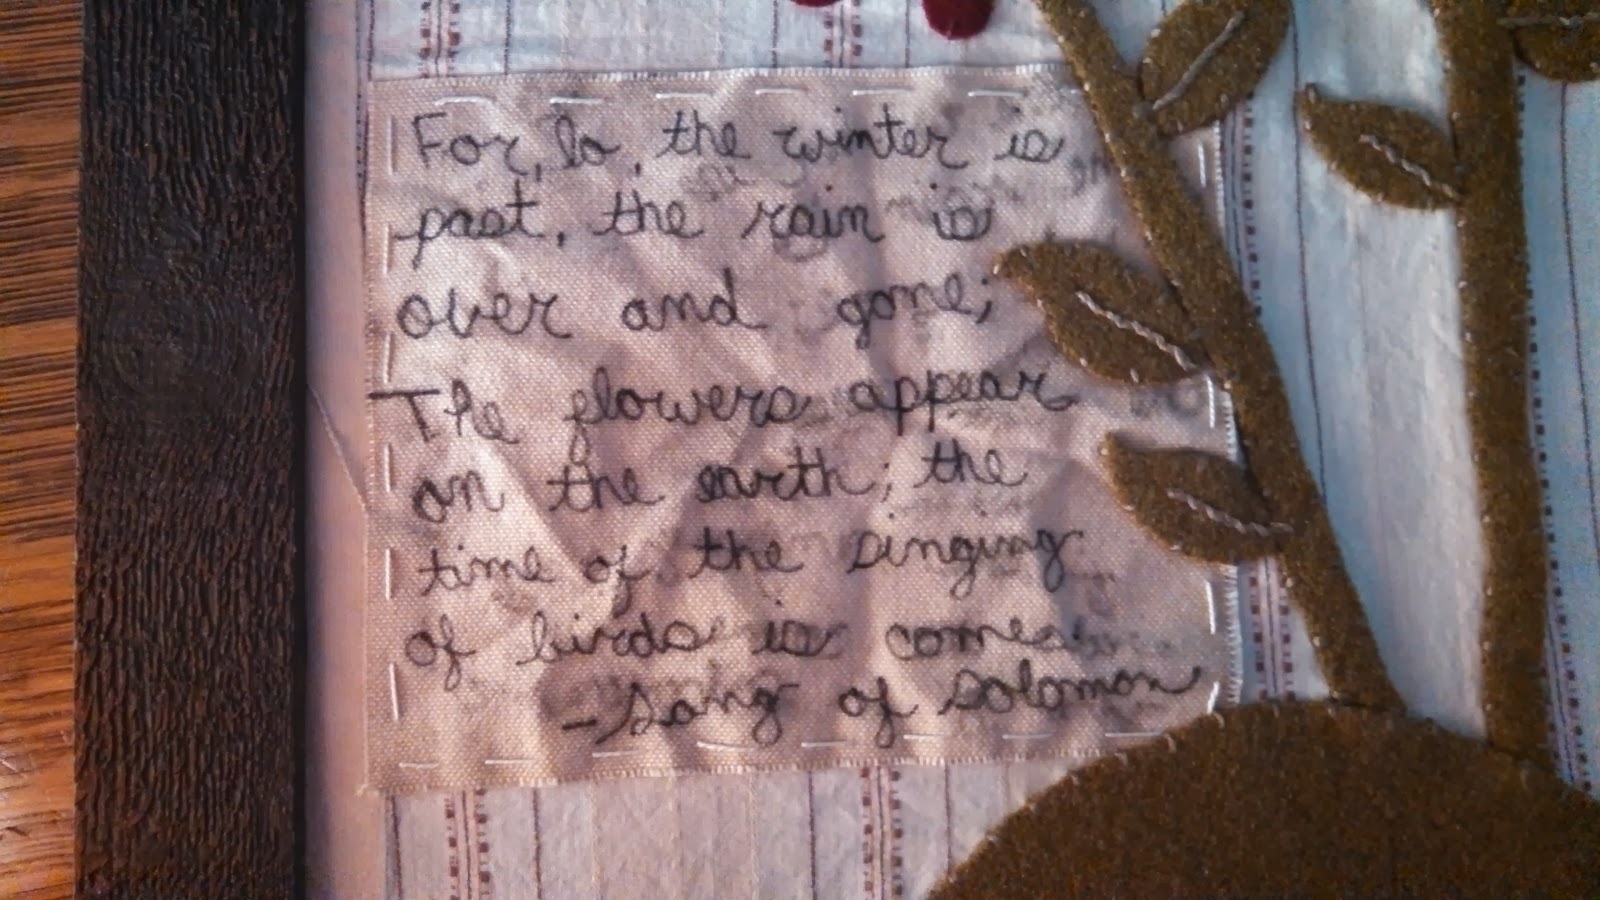 For, lo, the winter is
past, the rain is
over and gone;
The flowers appear
on the earth; the
time of the singing
of birds is come
-Song of Solomon